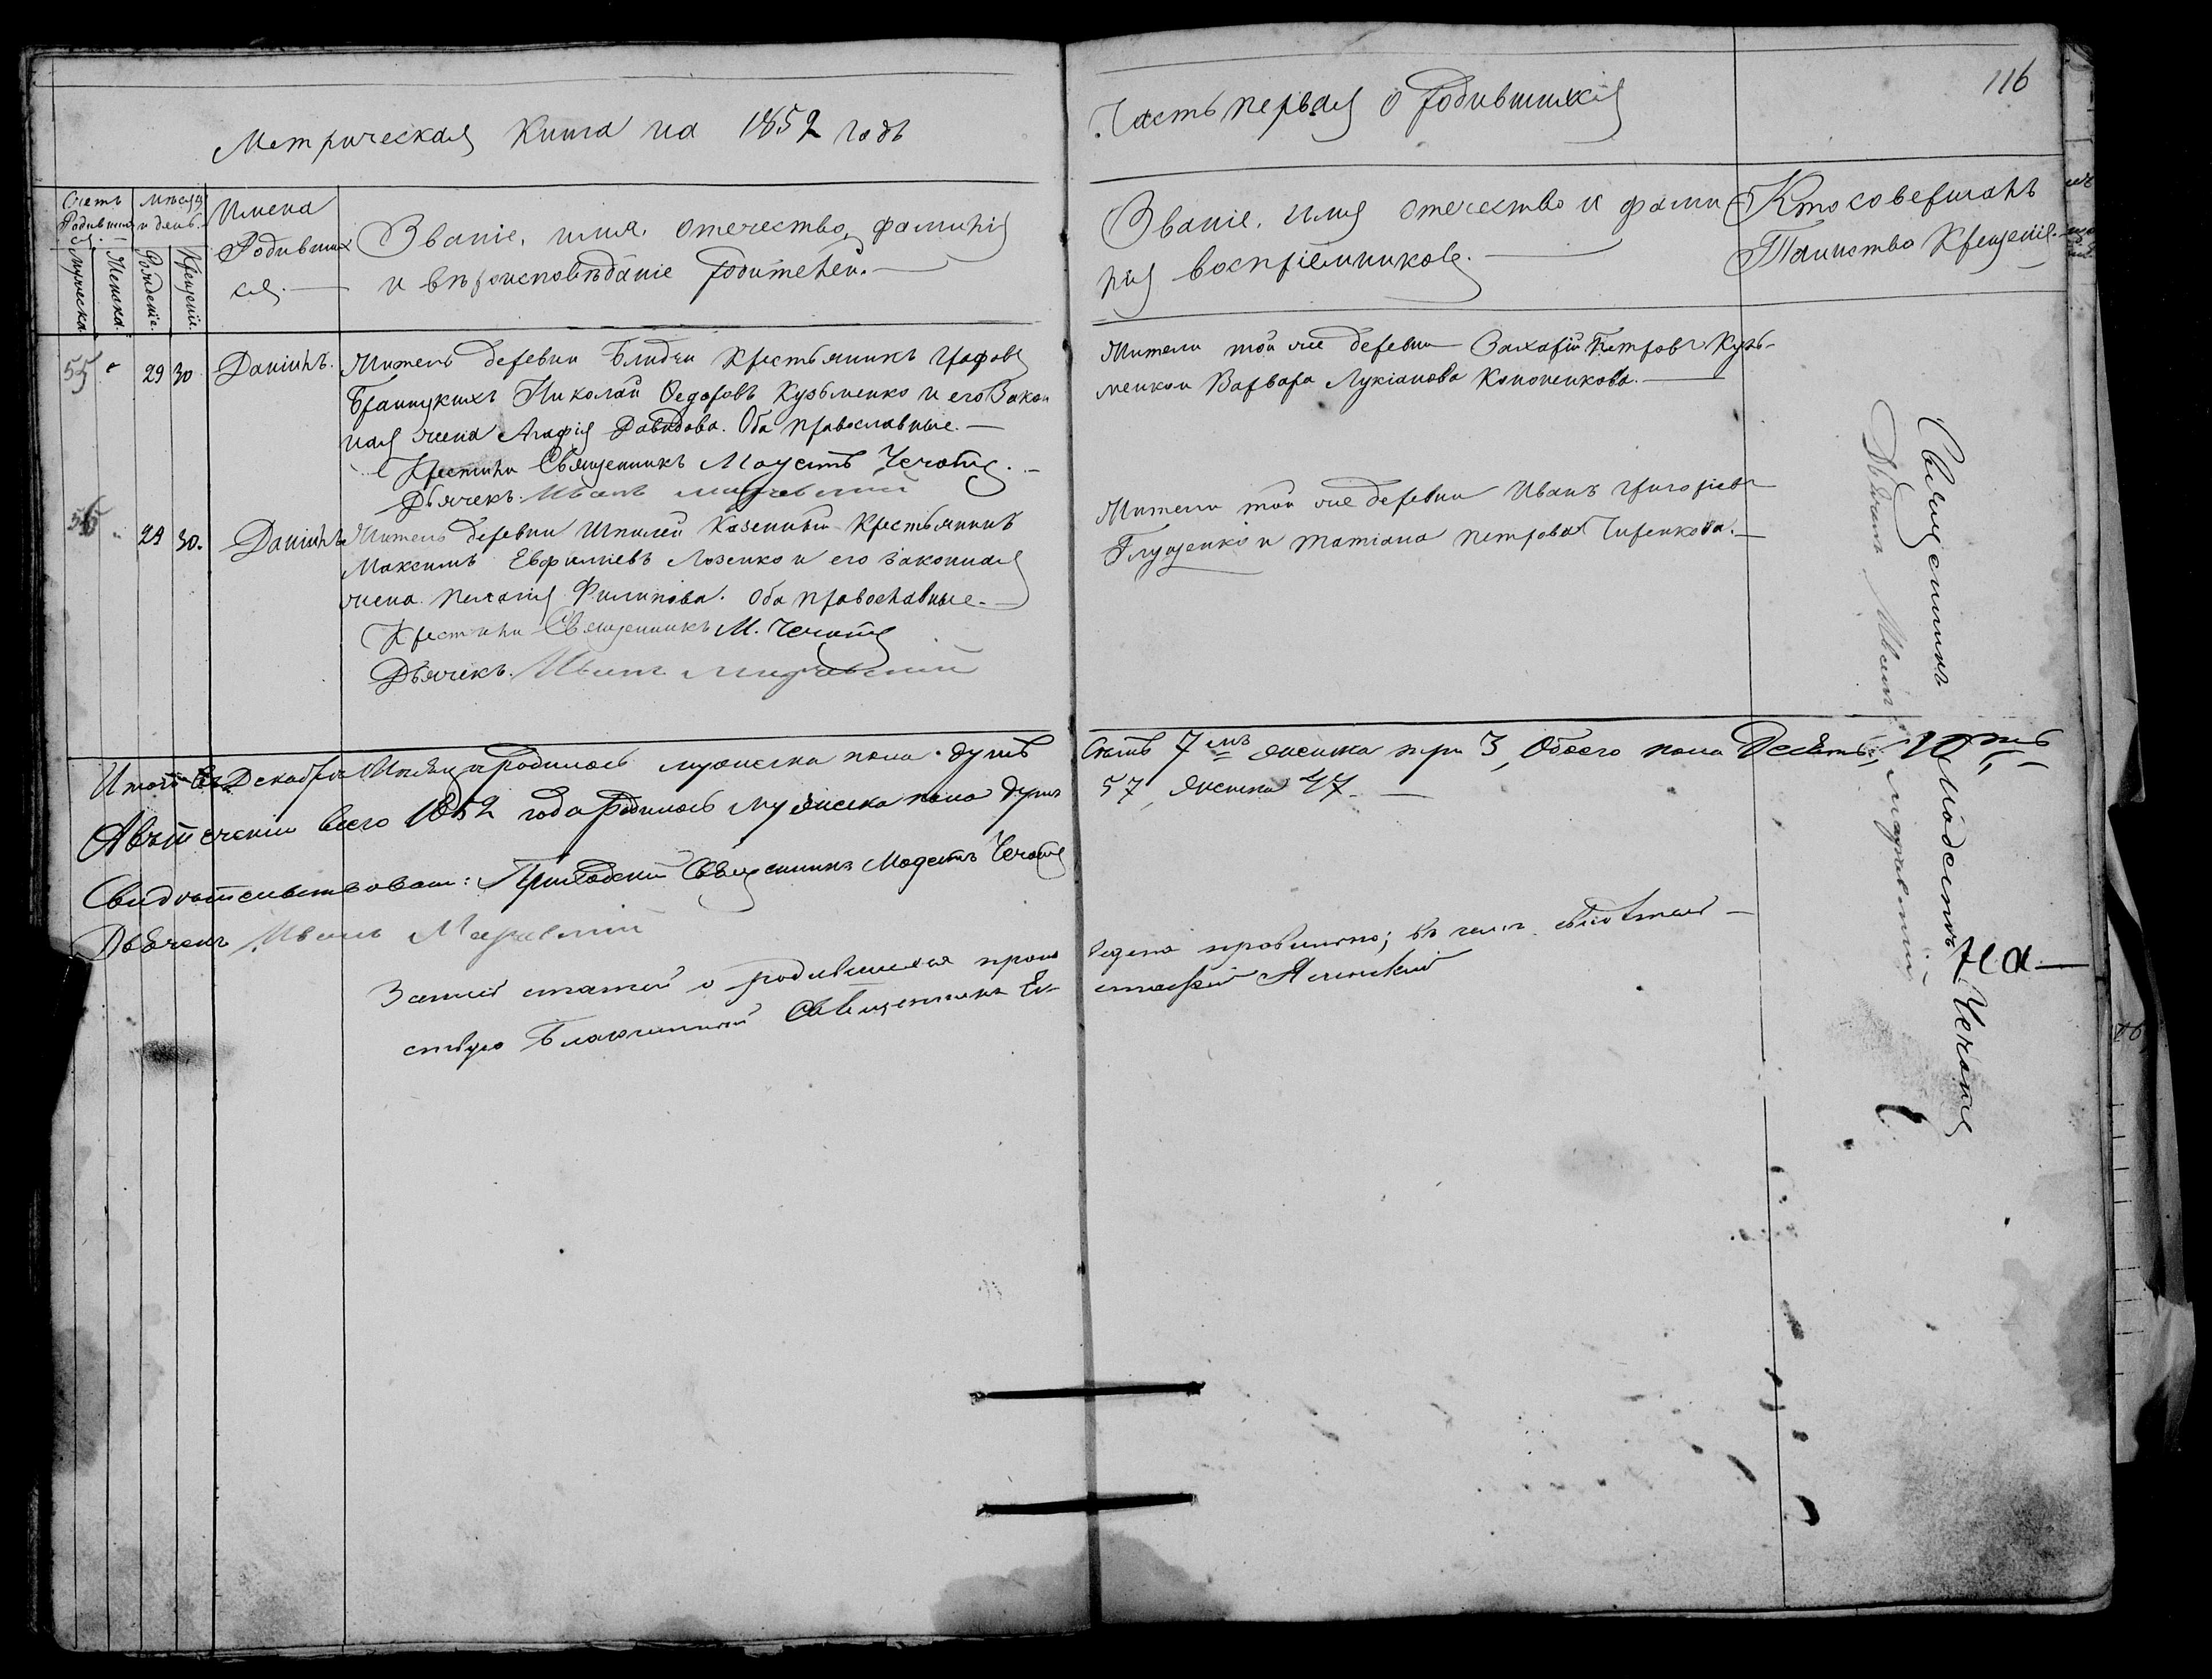 Метрическая Книга на 1852 годъ
Часть первая о родившихся
116
Счетъ Родившихся.
Мѣсяцъ и день.
Мужеска.
Женска.
Рожденіе.
Крещеніе.
Имена
Родивших
ся.
Званіе, имя, отечество, фамилія
и вѣроисповѣданіе родителей.
Званіе, имя отечество и фами
лія воспріемниковъ.
Кто совершалъ
Таинство Крещенія.
55 29 30 Даніилъ. Житель деревни Блидчи Крестьянинъ Графовъ
Браницкихъ Николай Федоровъ Кузьменко и его Закон
ная жена Агафія Давидова. Оба православные.
Крестилъ Священникъ Модестъ
Дьячекъ Иванъ
Жители той же деревни Захарій Петровъ Кузь-
менко и Варвара Лукіанова Кононенкова.
56 29 30. Даніилъ Житель деревни Шпилей Казенный Крестьянинъ
Максимъ Евфиміевъ Лозенко и его законная
жена Пелагія Филипова. Оба православные.
Крестилъ Священникъ М.
Дьячекъ. Иванъ
Жители той же деревни Иванъ Григоріевъ
Глущенко и Татіана Петрова
Священникъ Модестъ
Дьячекъ Иванъ
Итого въ Декабрѣ Мѣсяцѣ родилось мужеска пола душъ
семь 7мъ женска три 3, Обоего пола Десять, 10ть
А въ теченіи всего 1852 года родилось мужеска пола душъ
57, женска 47.
Свидѣтельствовали: Приходскій Священникъ Модестъ
Дьячекъ Иванъ
Записей статей о родившихся произ
ведена правильно; въ чемъ свидѣтель
ствую Благочинный Священникъ Ев
стафій